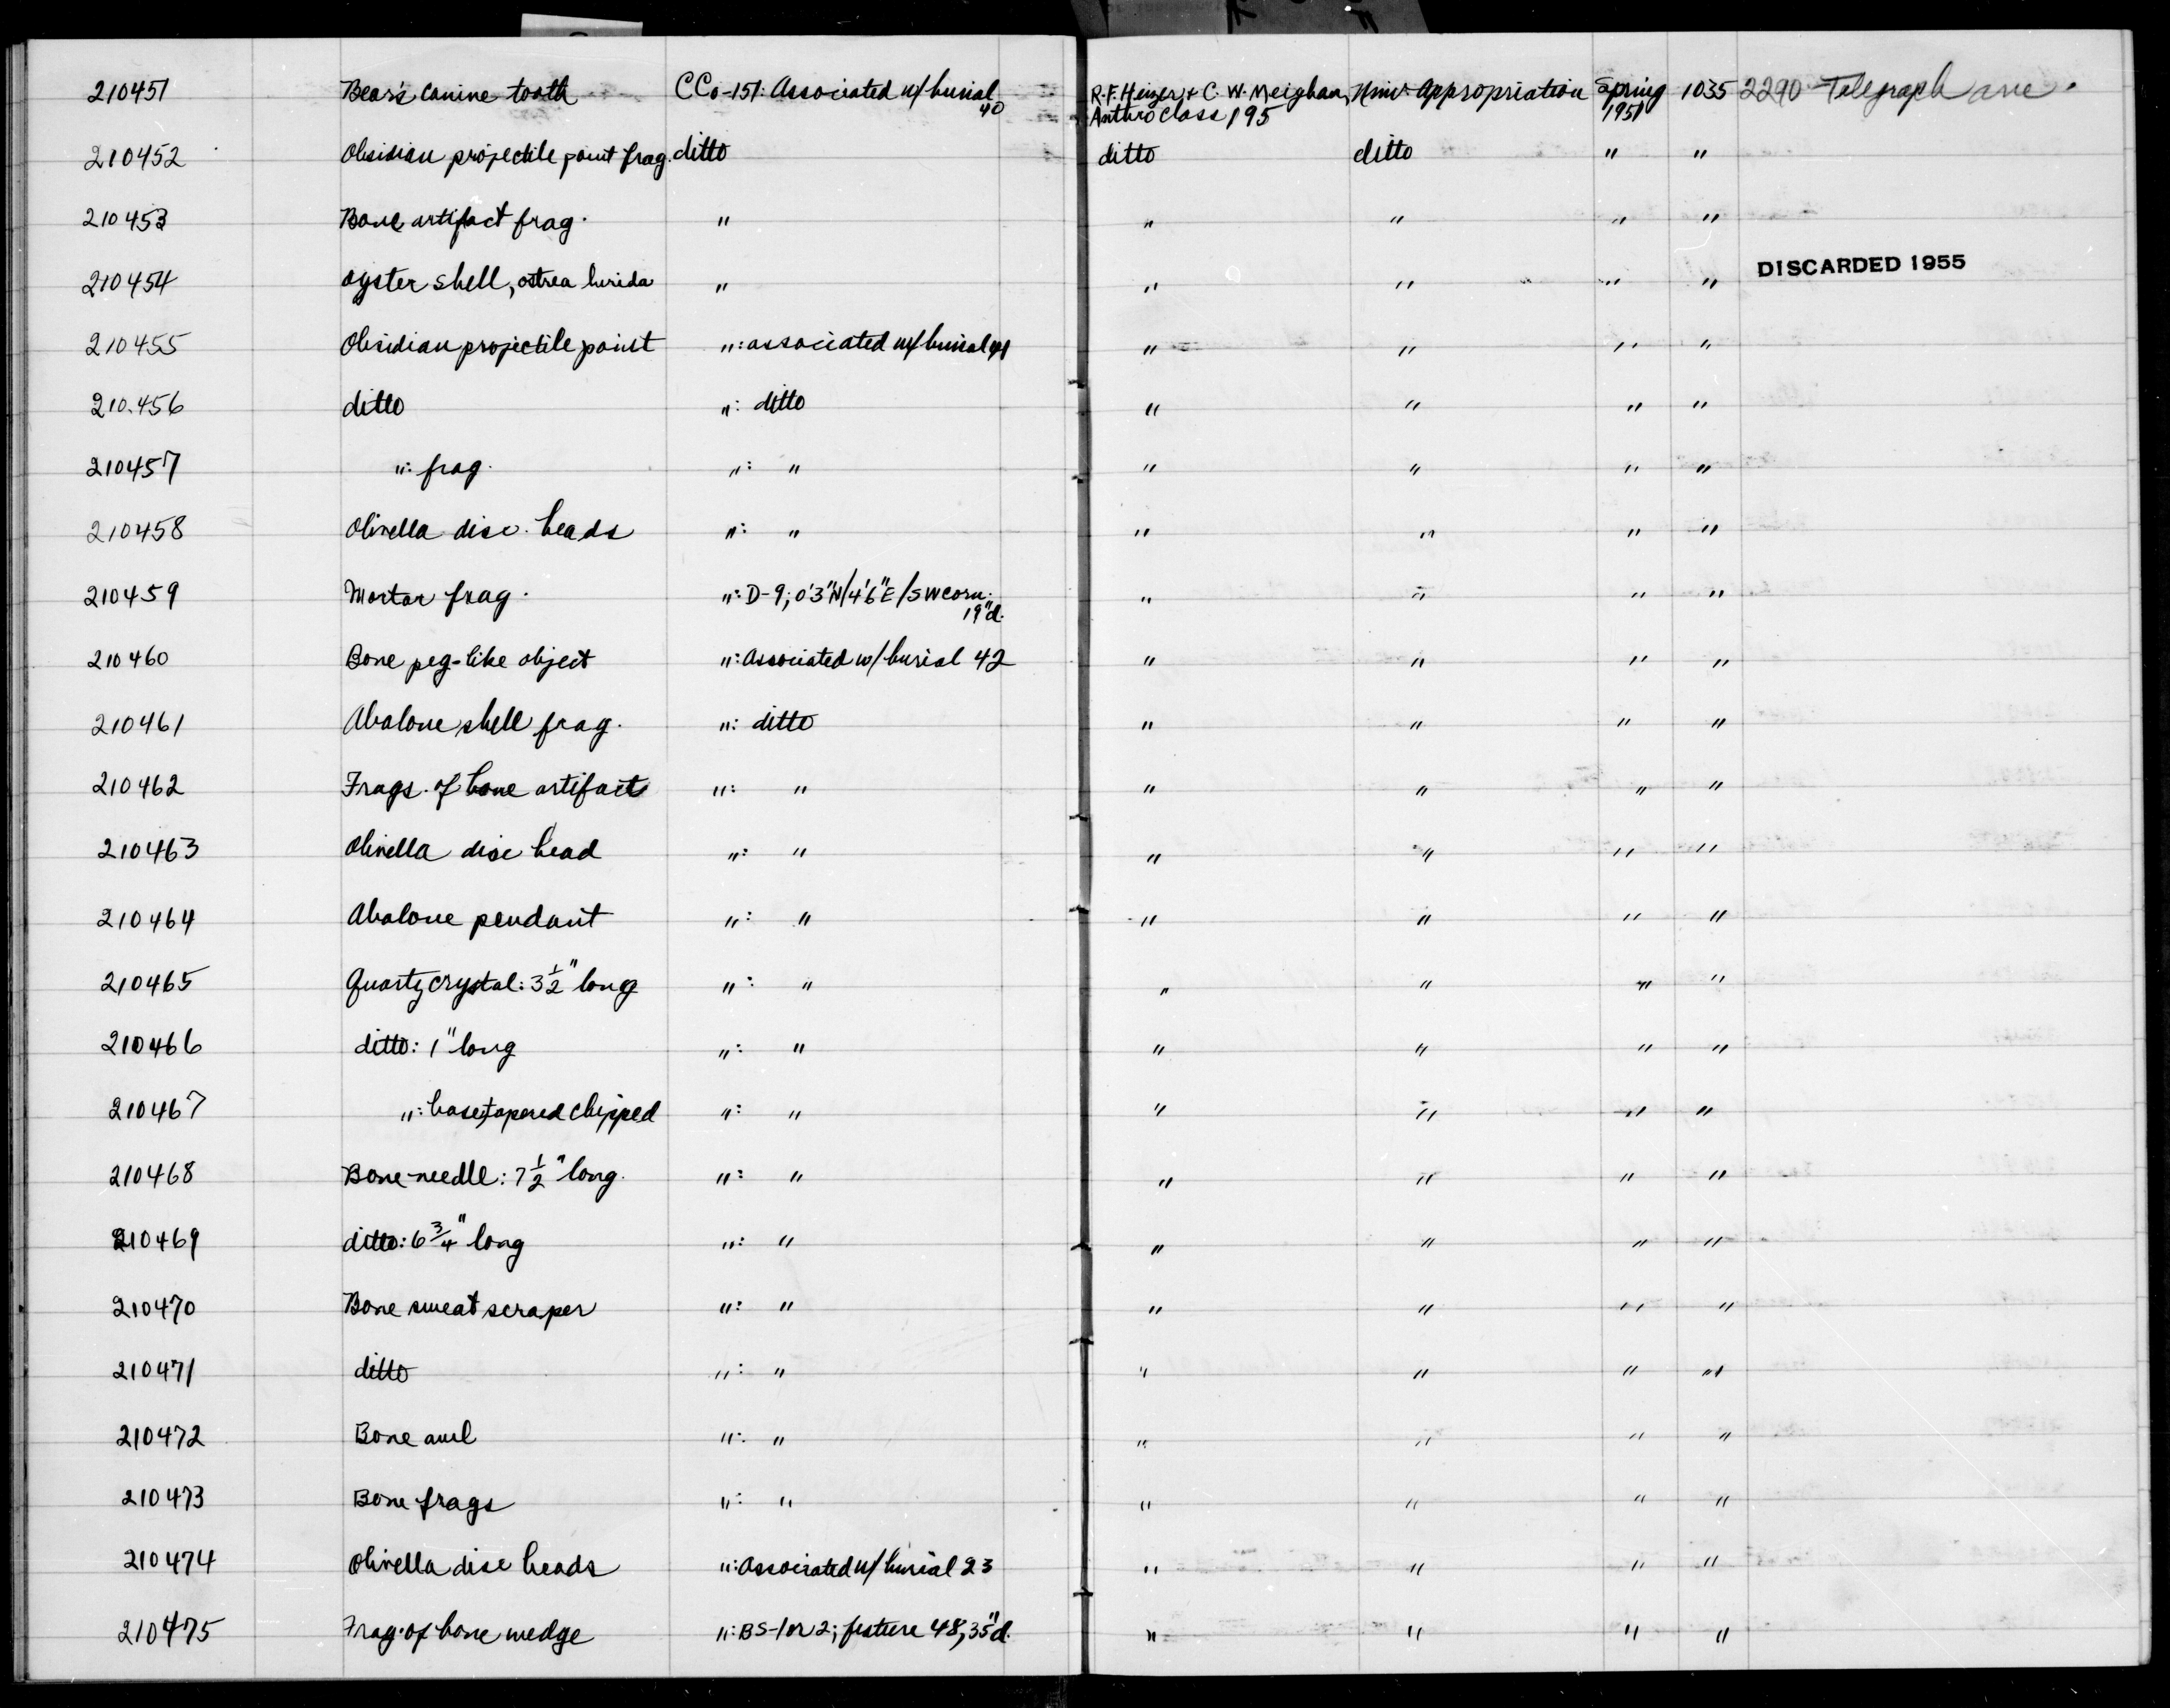 210451 Bear's canine tooth CCo-151: Associated w/ burial 40 R.F. Heizer & C.W. Meighan, Anthro Class 195 Univ. Appropriation Spring 1951 1035 2290 Telegraph ave.
210452 Obsidian projectile point frag. ditto ditto ditto " "
210453 Bone artifact frag. " " " " "
210454 oyster shell, ostrea lurida " " " " " DISCARDED 1955
210455 Obsidian projectile point ": associated w/ burial 41 " " " "
210456 ditto ": ditto " " " "
210457 ": frag. ": " " " " "
210458 Olivella disc beads ": " " " " "
210459 Mortar frag. ": D-9; 0'3"N/4'6"E/SW corn. 19"d. " " " "
210460 Bone peg-like object ": Associated w/ burial 42 " " " "
210461 Abalone shell frag. ": ditto " " " "
210462 Frags. of bone artifact ": " " " " "
210463 Olivella disc bead ": " " " " "
210464 Abalone pendant ": " " " " "
210465 Quartz crystal: 3 1/2" long ": " " " " "
210466 ditto: 1" long ": " " " " "
210467 ": base, tapered chipped ": " " " " "
210468 Bone needle: 7 1/2" long. ": " " " " "
210469 ditto: 6 3/4" long ": " " " " "
210470 Bone sweat scraper ": " " " " "
210471 ditto ": " " " " "
210472 Bone awl ": " " " " "
210473 Bone frags ": " " " " "
210474 Olivella disc beads ": Associated w/ burial 23 " " " "
210475 Frag. of bone wedge ": BS-1 or 2; feature 48, 35"d. " " " "